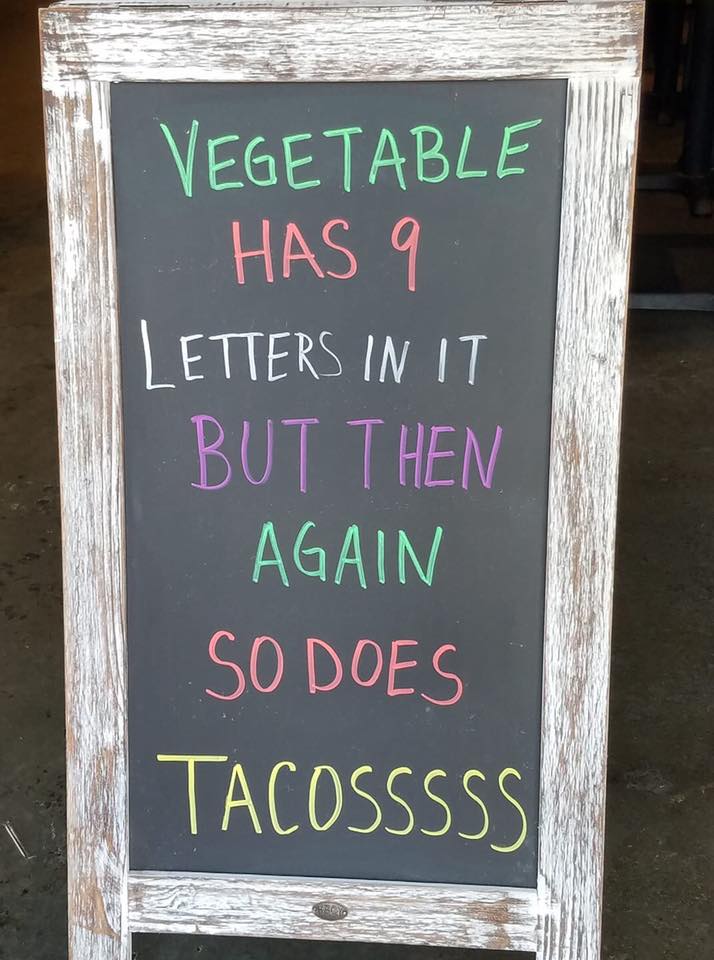 VEGETABLE
HAS 9
LETTERS IN IT
BUT THEN
AGAIN
SO DOES
TACOSSSSS